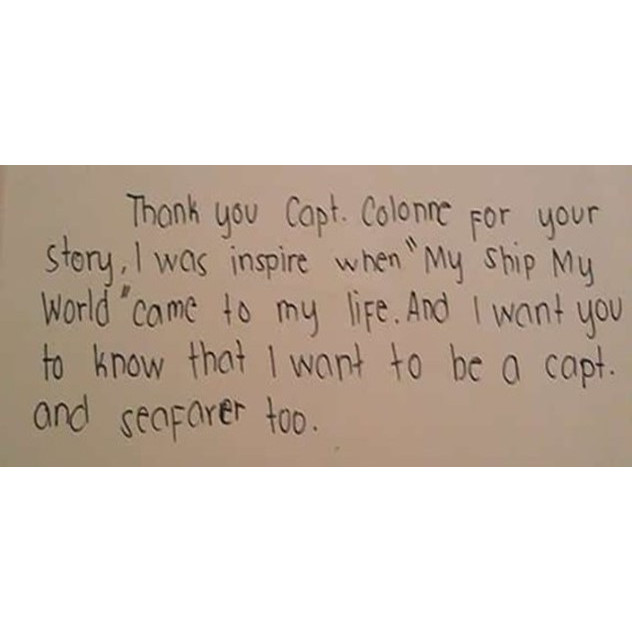 Thank you Capt. Colonne for your
story, I was inspire when "My Ship My
World" came to my life. And I want you
to know that I want to be a capt.
and seafarer too.